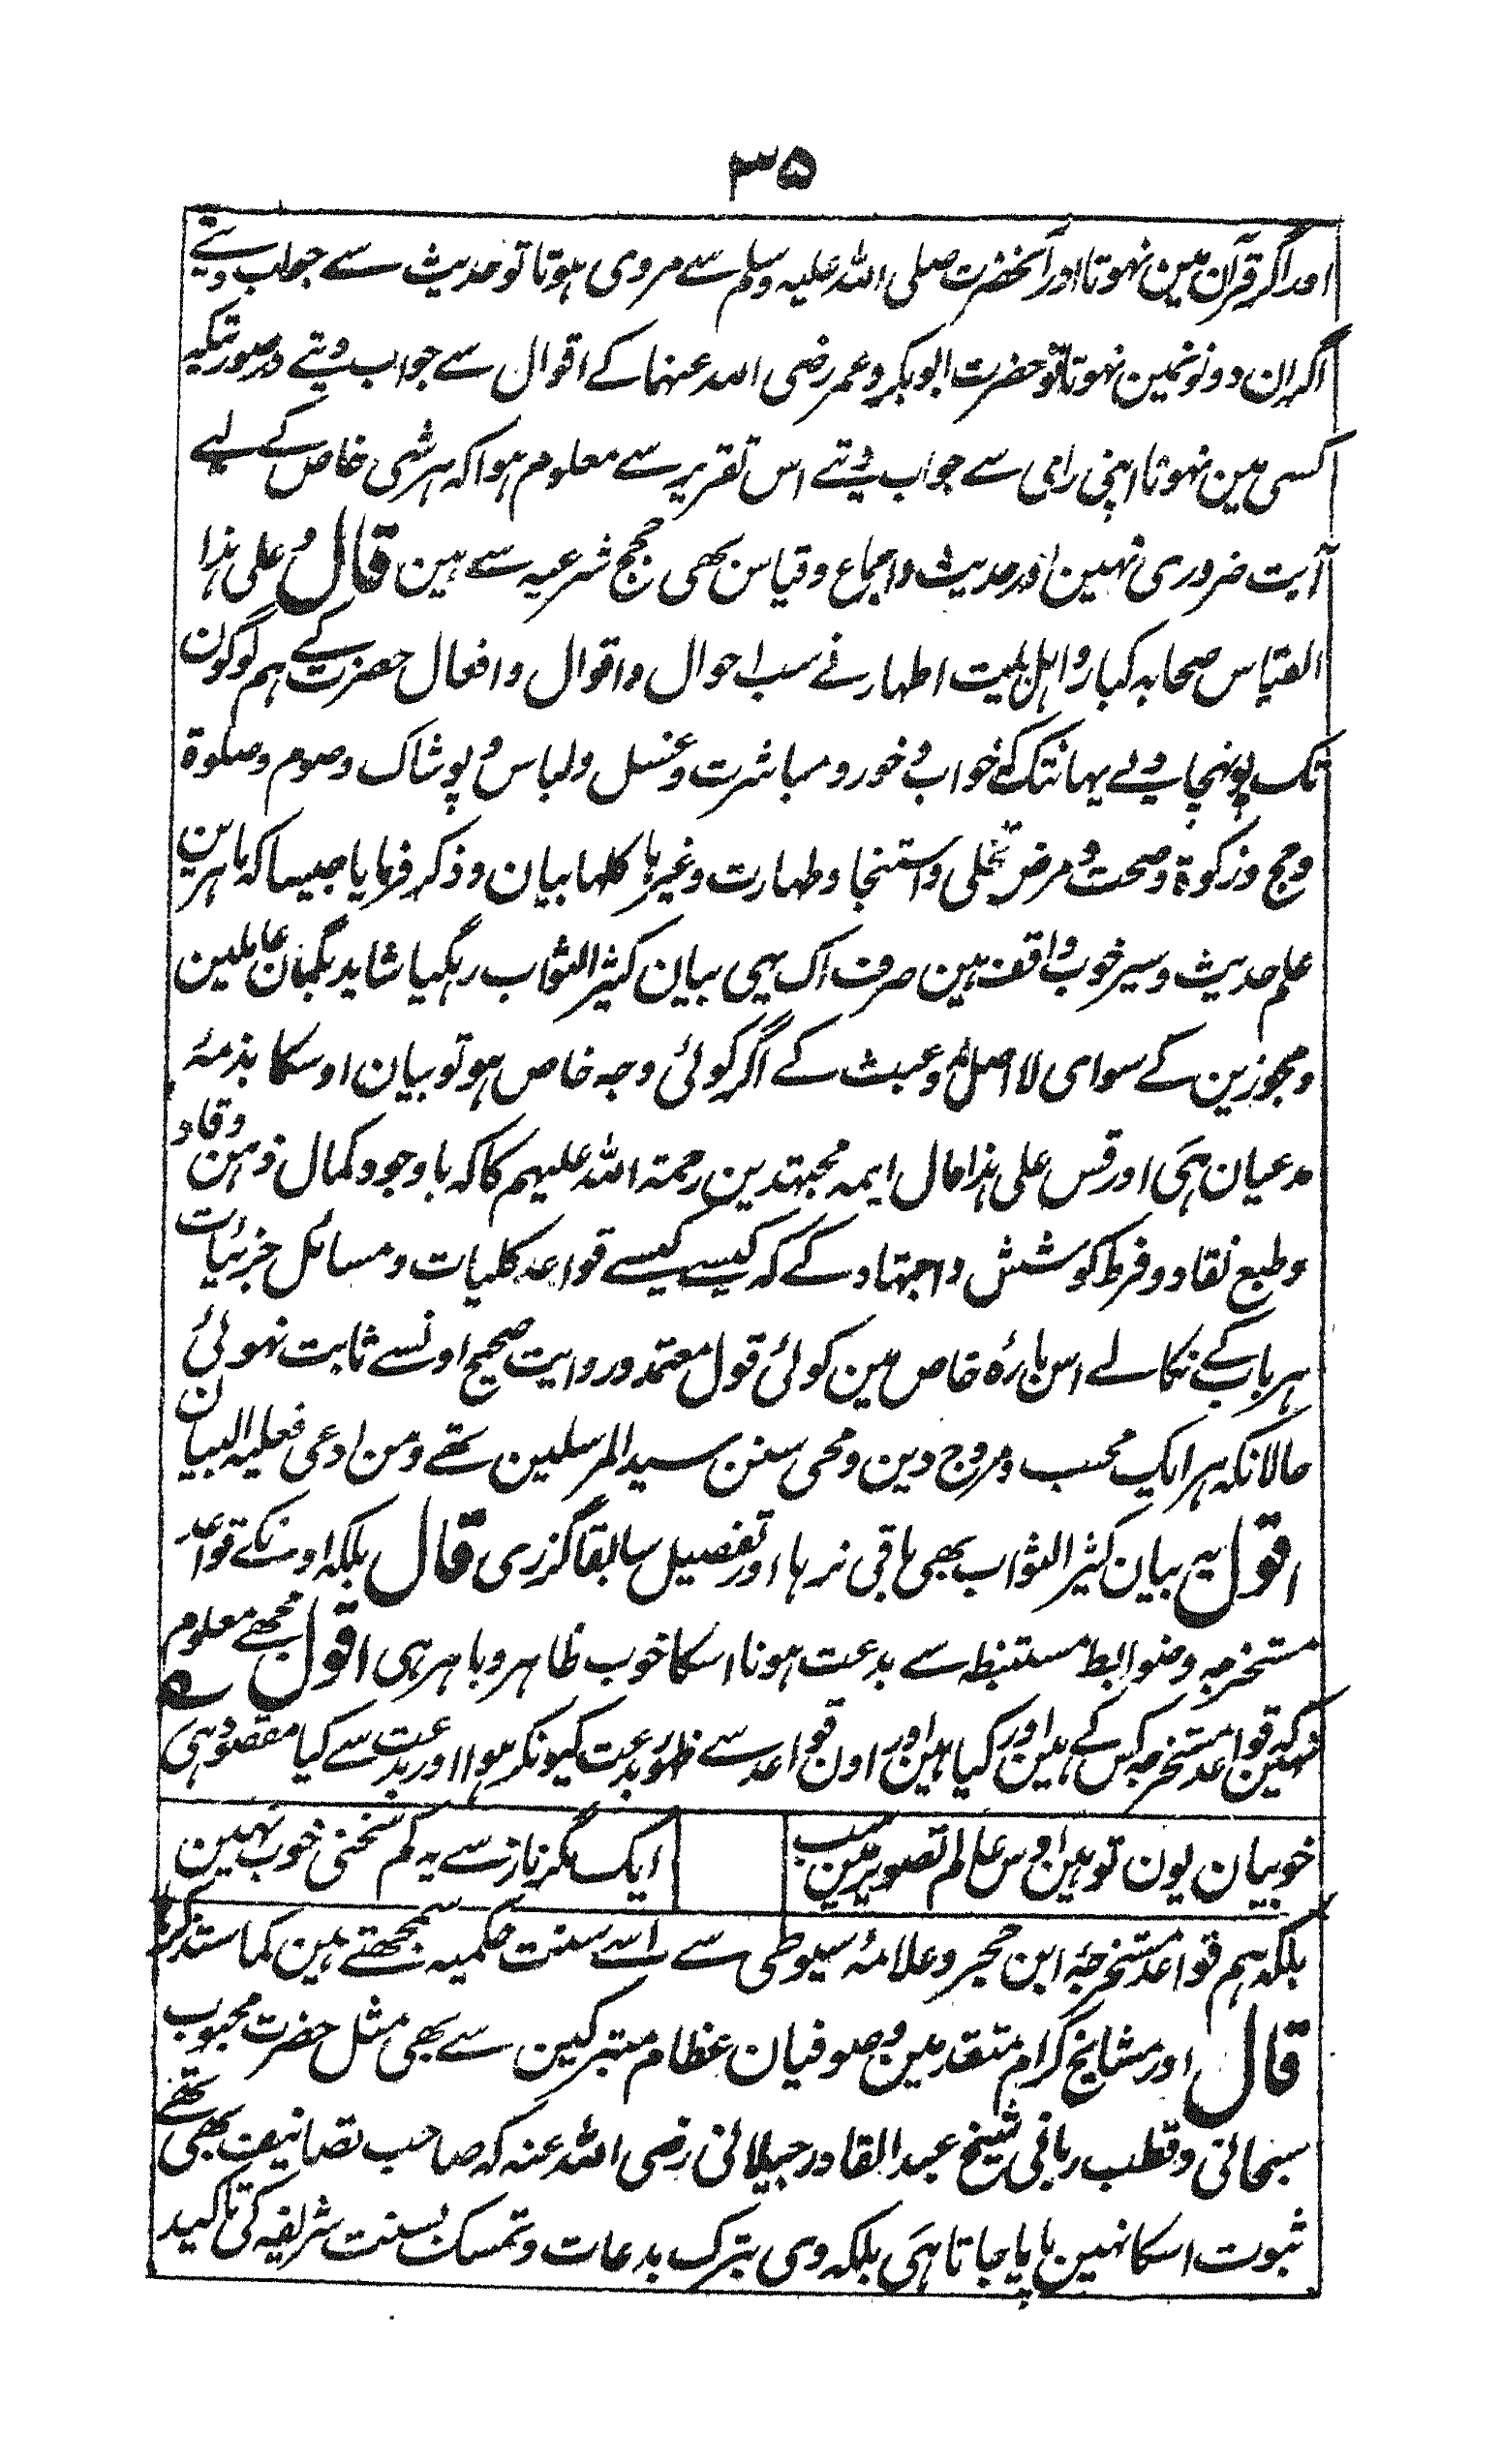 ۳۵
اور اگر قرآن مین نہوتا اور آنحضرت صلی اللہ علیہ وسلم سے مروی ہوتا تو حدیث سے جواب دیتے
اگر ان دونونمین نہوتا تو حضرت ابوبکر و عمر رضی اللہ عنہما کے اقوال سے جواب دیتے درصورتیکہ
کسی مین نہوتا اپنی رای سے جواب دیتے اس تقریر سے معلوم ہوا کہ ہر شی خاص کے لیے
آیت ضروری نہین اور حدیث و اجماع و قیاس بھی حجج شرعیہ سے ہین قال و علی ہذا
القیاس صحابہ کبار و اہل بیت اطہار نے سب احوال و اقوال و افعال حضرت کے ہم لوگون
تک پونہچا دیے یہانتک کے خواب و خور و مباشرت و غسل و لباس و پوشاک و صوم و صلوۃ
و حج و زکوۃ و صحت و مرض تخلی و استنجا و طہارت و غیرہا کلہا بیان و ذکر فرمایا جیسا کہ ماہرین
علم حدیث و سیر خوب واقف ہین صرف اک یہی بیان کثیر الثواب رہگیا شاید بگمان عاملین
و مجوزین کے سوای لا اصل و عبث کے اگر کوئی وجہ خاص ہو تو بیان اوسکا بذمۂ
مدعیان ہی اور قس علی ہذا حال ایمہ مجتہدین رحمۃ اللہ علیہم کا کہ باوجود کمال ذہن وقاد
و طبع نقاد و فرط کوشش و اجتہاد کے کہ کیسے کیسے قواعد کلیات و مسائل جزئیات
ہر باب کے نکالے اس بارۂ خاص مین کوئی قول معتمد و روایت صحیح اونسے ثابت نہوئی
حالانکہ ہر ایک محب و مروج دین و محی سنن سید المرسلین تھے و من ادعی فعلیہ البیان
اقول یہ بیان کثیر الثواب بھی باقی نرہا اور تفصیل سابقا گزری قال بلکہ اونکے قواعد
مستخرجہ و ضوابط مستنبطہ سے بدعت ہونا اسکا خوب ظاہر و باہر ہی اقول مجھے معلوم
نہین کہ قواعد مستخرجہ کس کے ہین اور کیا ہین اور اون قواعد سے ظہور بدعت کیونکر ہوا اور بدعت سے کیا مقصود ہی
خوبیان یون تو ہین اوس عالم تصویر مین سب
ایک مگر ناز سے یہ کم سخنی خوب نہین
بلکہ ہم قواعد مستخرجۂ ابن حجر و علامۂ سیوطی سے اسے سنت حکمیہ سمجھتے ہین کما ستذکرہا
قال اور مشایخ کرام متقدمین و صوفیان عظام متبرکین سے بھی مثل حضرت محبوب
سبحانی و قطب ربانی شیخ عبد القادر جیلانی رضی اللہ عنہ کہ صاحب تصانیف بھی تھے
ثبوت اسکا نہین پایا جاتا ہی بلکہ وی بترک بدعات و تمسک بسنت شریفہ کی تاکید